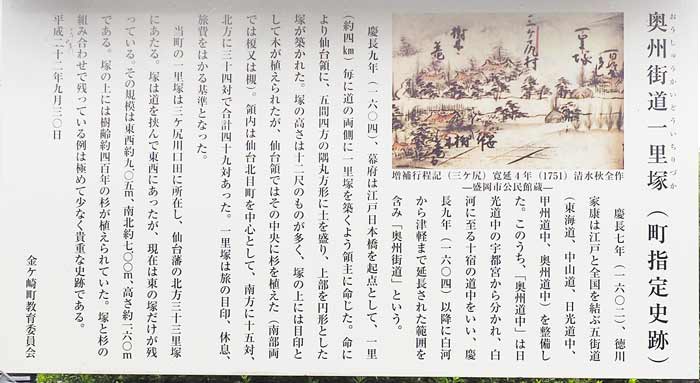 奥州街道一里塚（町指定史跡）
おうしゅうかいどういちりづか
慶長七年（一六〇二）、徳川
家康は江戸と全国を結ぶ五街道
（東海道、中山道、日光道中、
甲州道中、奥州道中）を整備し
た。このうち、「奥州道中」は日
光道中の宇都宮から分かれ、白
河に至る十宿の道中をいい、慶
長九年（一六〇四）以降に白河
から津軽まで延長された範囲を
含み「奥州街道」という。
三ケ尻村
一里塚
増補行程記（三ケ尻）寛延4年（1751）清水秋全作
―盛岡市公民館蔵―
慶長九年（一六〇四）、幕府は江戸日本橋を起点として、一里
（約四㎞）毎に道の両側に一里塚を築くよう領主に命じた。命に
より仙台領に、五間四方の隅丸方形に土を盛り、上部を円形とした
塚が築かれた。塚の高さは十二尺のものが多く、塚の上には目印と
して木が植えられたが、仙台領ではその中央に杉を植えた（南部領
では榎又は槻）。領内は仙台北目町を中心として、南方に十五対、
北方に三十四対で合計四十九対あった。一里塚は旅の目印、休息、
旅費をはかる基準となった。
当町の一里塚は三ケ尻川口田に所在し、仙台藩の北方三十三里塚
にあたる。塚は道を挟んで東西にあったが、現在は東の塚だけが残
っている。その規模は東西約九・〇五ｍ、南北約七・〇〇ｍ、高さ約二・六〇ｍ
である。塚の上には樹齢約四百年の杉が植えられていた。塚と杉の
組み合わせで残っている例は極めて少なく貴重な史跡である。
平成二十二年九月三〇日
金ケ崎町教育委員会